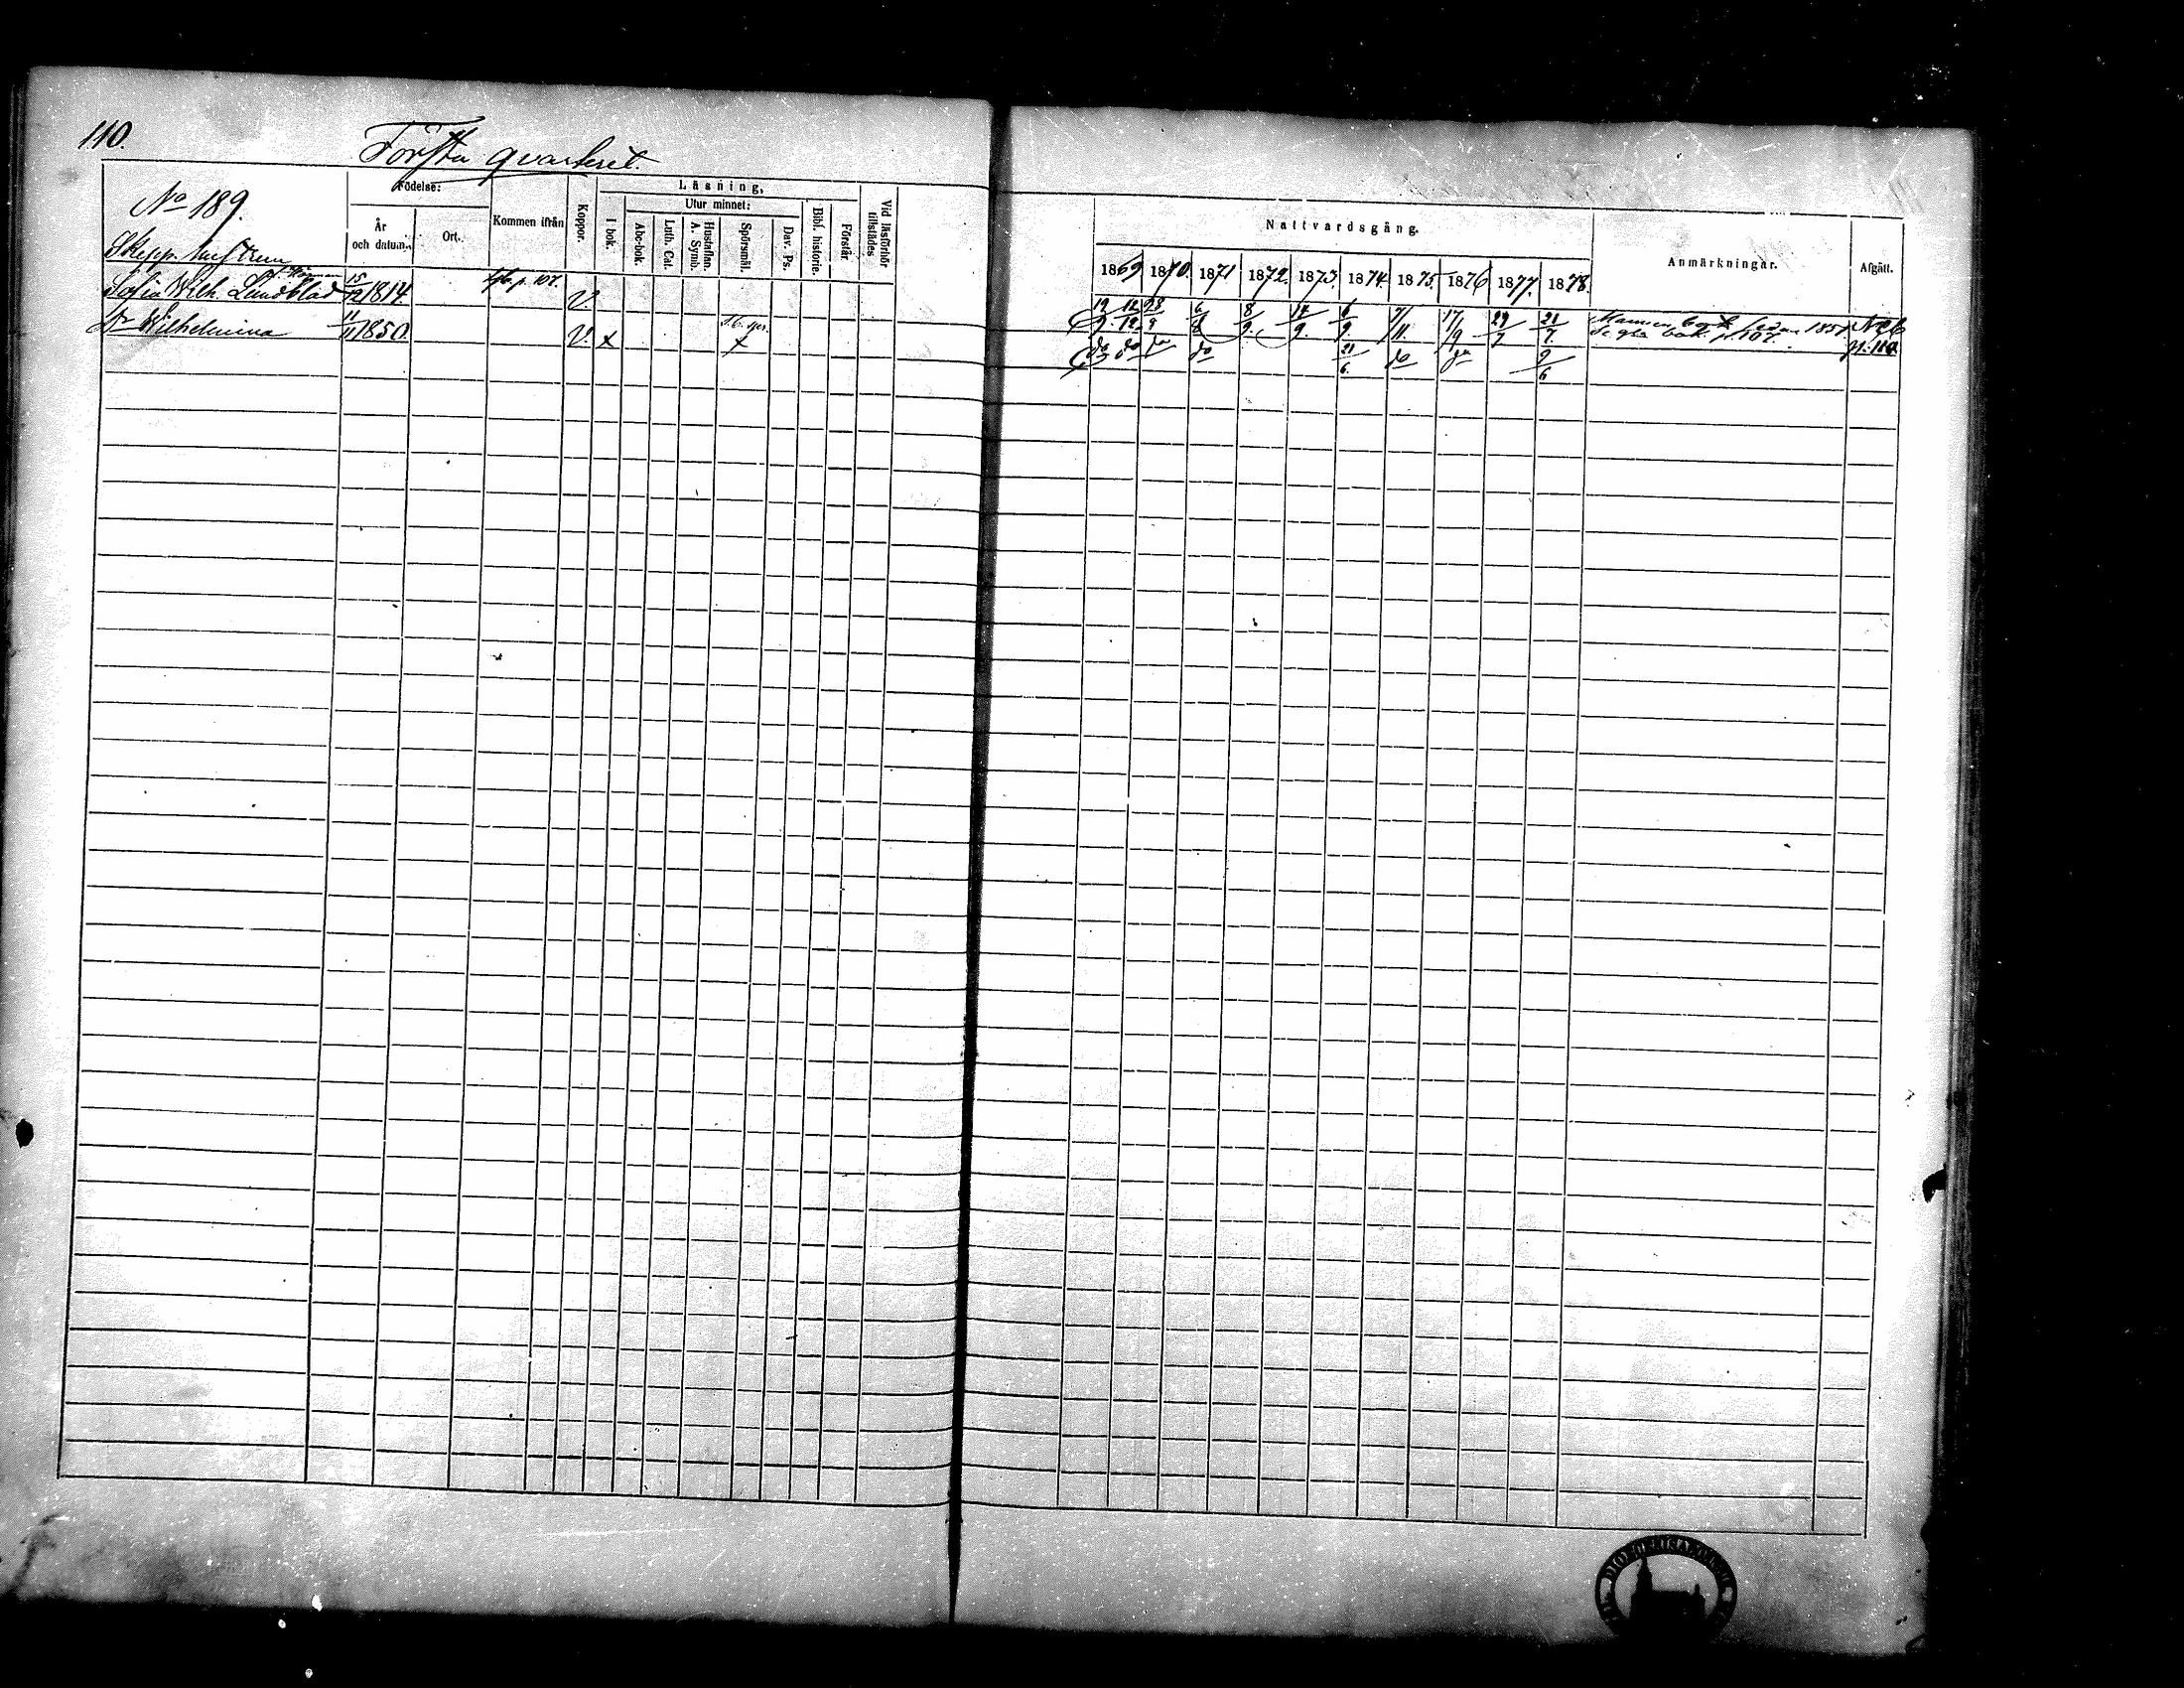 110.
Första qvarteret.
No 189.
Födelse:
År och datum.
Ort.
Kommen ifrån
Koppor.
Läsning,
I bok.
Utur minnet:
Abc-bok.
Luth. Cat.
Hustaflan. A. Symb.
Spörsmål.
Dav. Ps.
Bibl. historie.
Förstår.
Vid läsförhör tillstädes
Nattvardsgång.
1869 1870. 1871 1872. 1873. 1874. 1875. 1876 1877. 1878.
Anmärkningar.
Afgått.
Skepp. hustrun
Sofia Wilh. Lundblad 15/12 1814 p. 107. V.
19/9. 12/12. 28/9 8/9. 17/9. 6/9. 7/11. 17/9 29/7 28/7.
Mannen bort sedan 1857. N. b.
Dr Wilhelmina 11/11 1850. V. x x
do do do do 21/6. do do 9/6
Se gla bok. p. 107. p. 110.